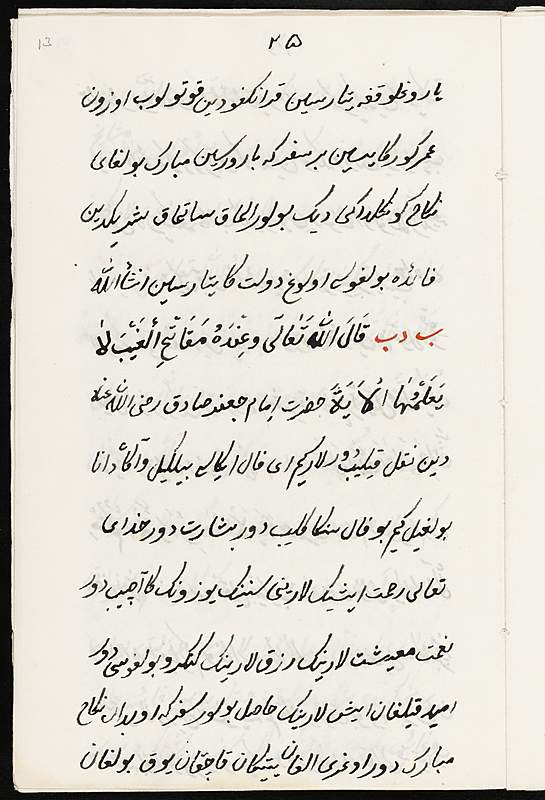 ۲۵
13
یاروغلوقغه یتارسین قرانکغودین قوتولوب اوزون
عمر کورکایسین بر سفرکه بارورسین مبارک بولغای
نکاح کونکلداکی دیک بولور الماق ساتماق شریکدین
فائده بولغوسی اولوغ دولت کا یتارسین انشاالله
ب د ب قَالَ الله تَعَالَی وعِنْدَهُ مَفَاتِحُ الْغَیْبِ لَا
یَعْلَمُهَا اِلَّا حضرت امام جعفر صادق رضی الله عنه
دین نقل قیلیب دورلار کیم ای فال ایکاسی بیلکیل و آکاه دانا
بولغیل کیم بو فال سنکا کلیب دور بشارت دور خدای
تعالی رحمت ایشیک لارینی سنینک یوزونک کا آچیب دور
نعمت معیشت لارینک رزق لارینک کنکرو بولغوسی دور
امید قیلغان ایش لارینک حاصل بولور سفرکه اوبدان نکاح
مبارک دور اوغری الغان یتیکان قاچقان یوق بولغان